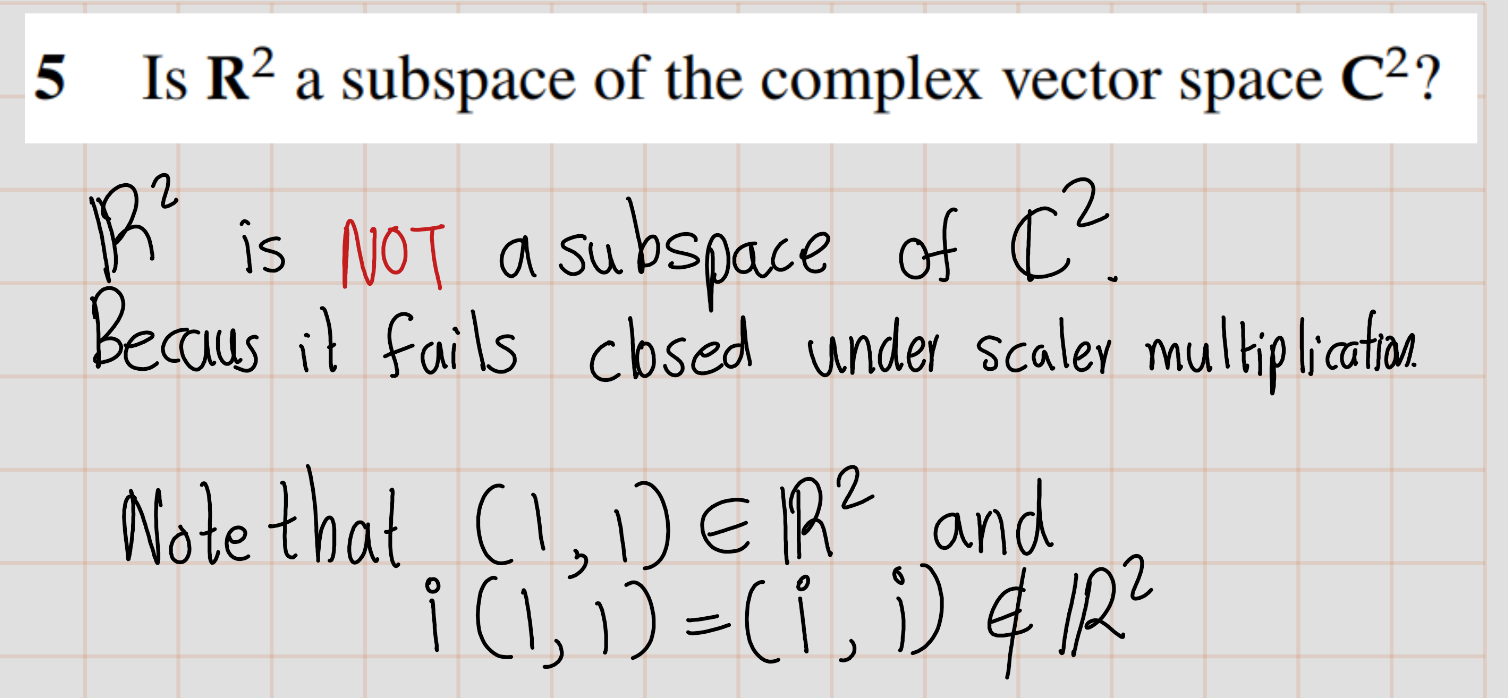 5 Is R² a subspace of the complex vector space C²?
ℝ² is NOT a subspace of ℂ².
Becaus it fails closed under scaler multiplication.
Note that (1, 1) ∈ ℝ² and
i(1, 1) = (i, i) ∉ ℝ²